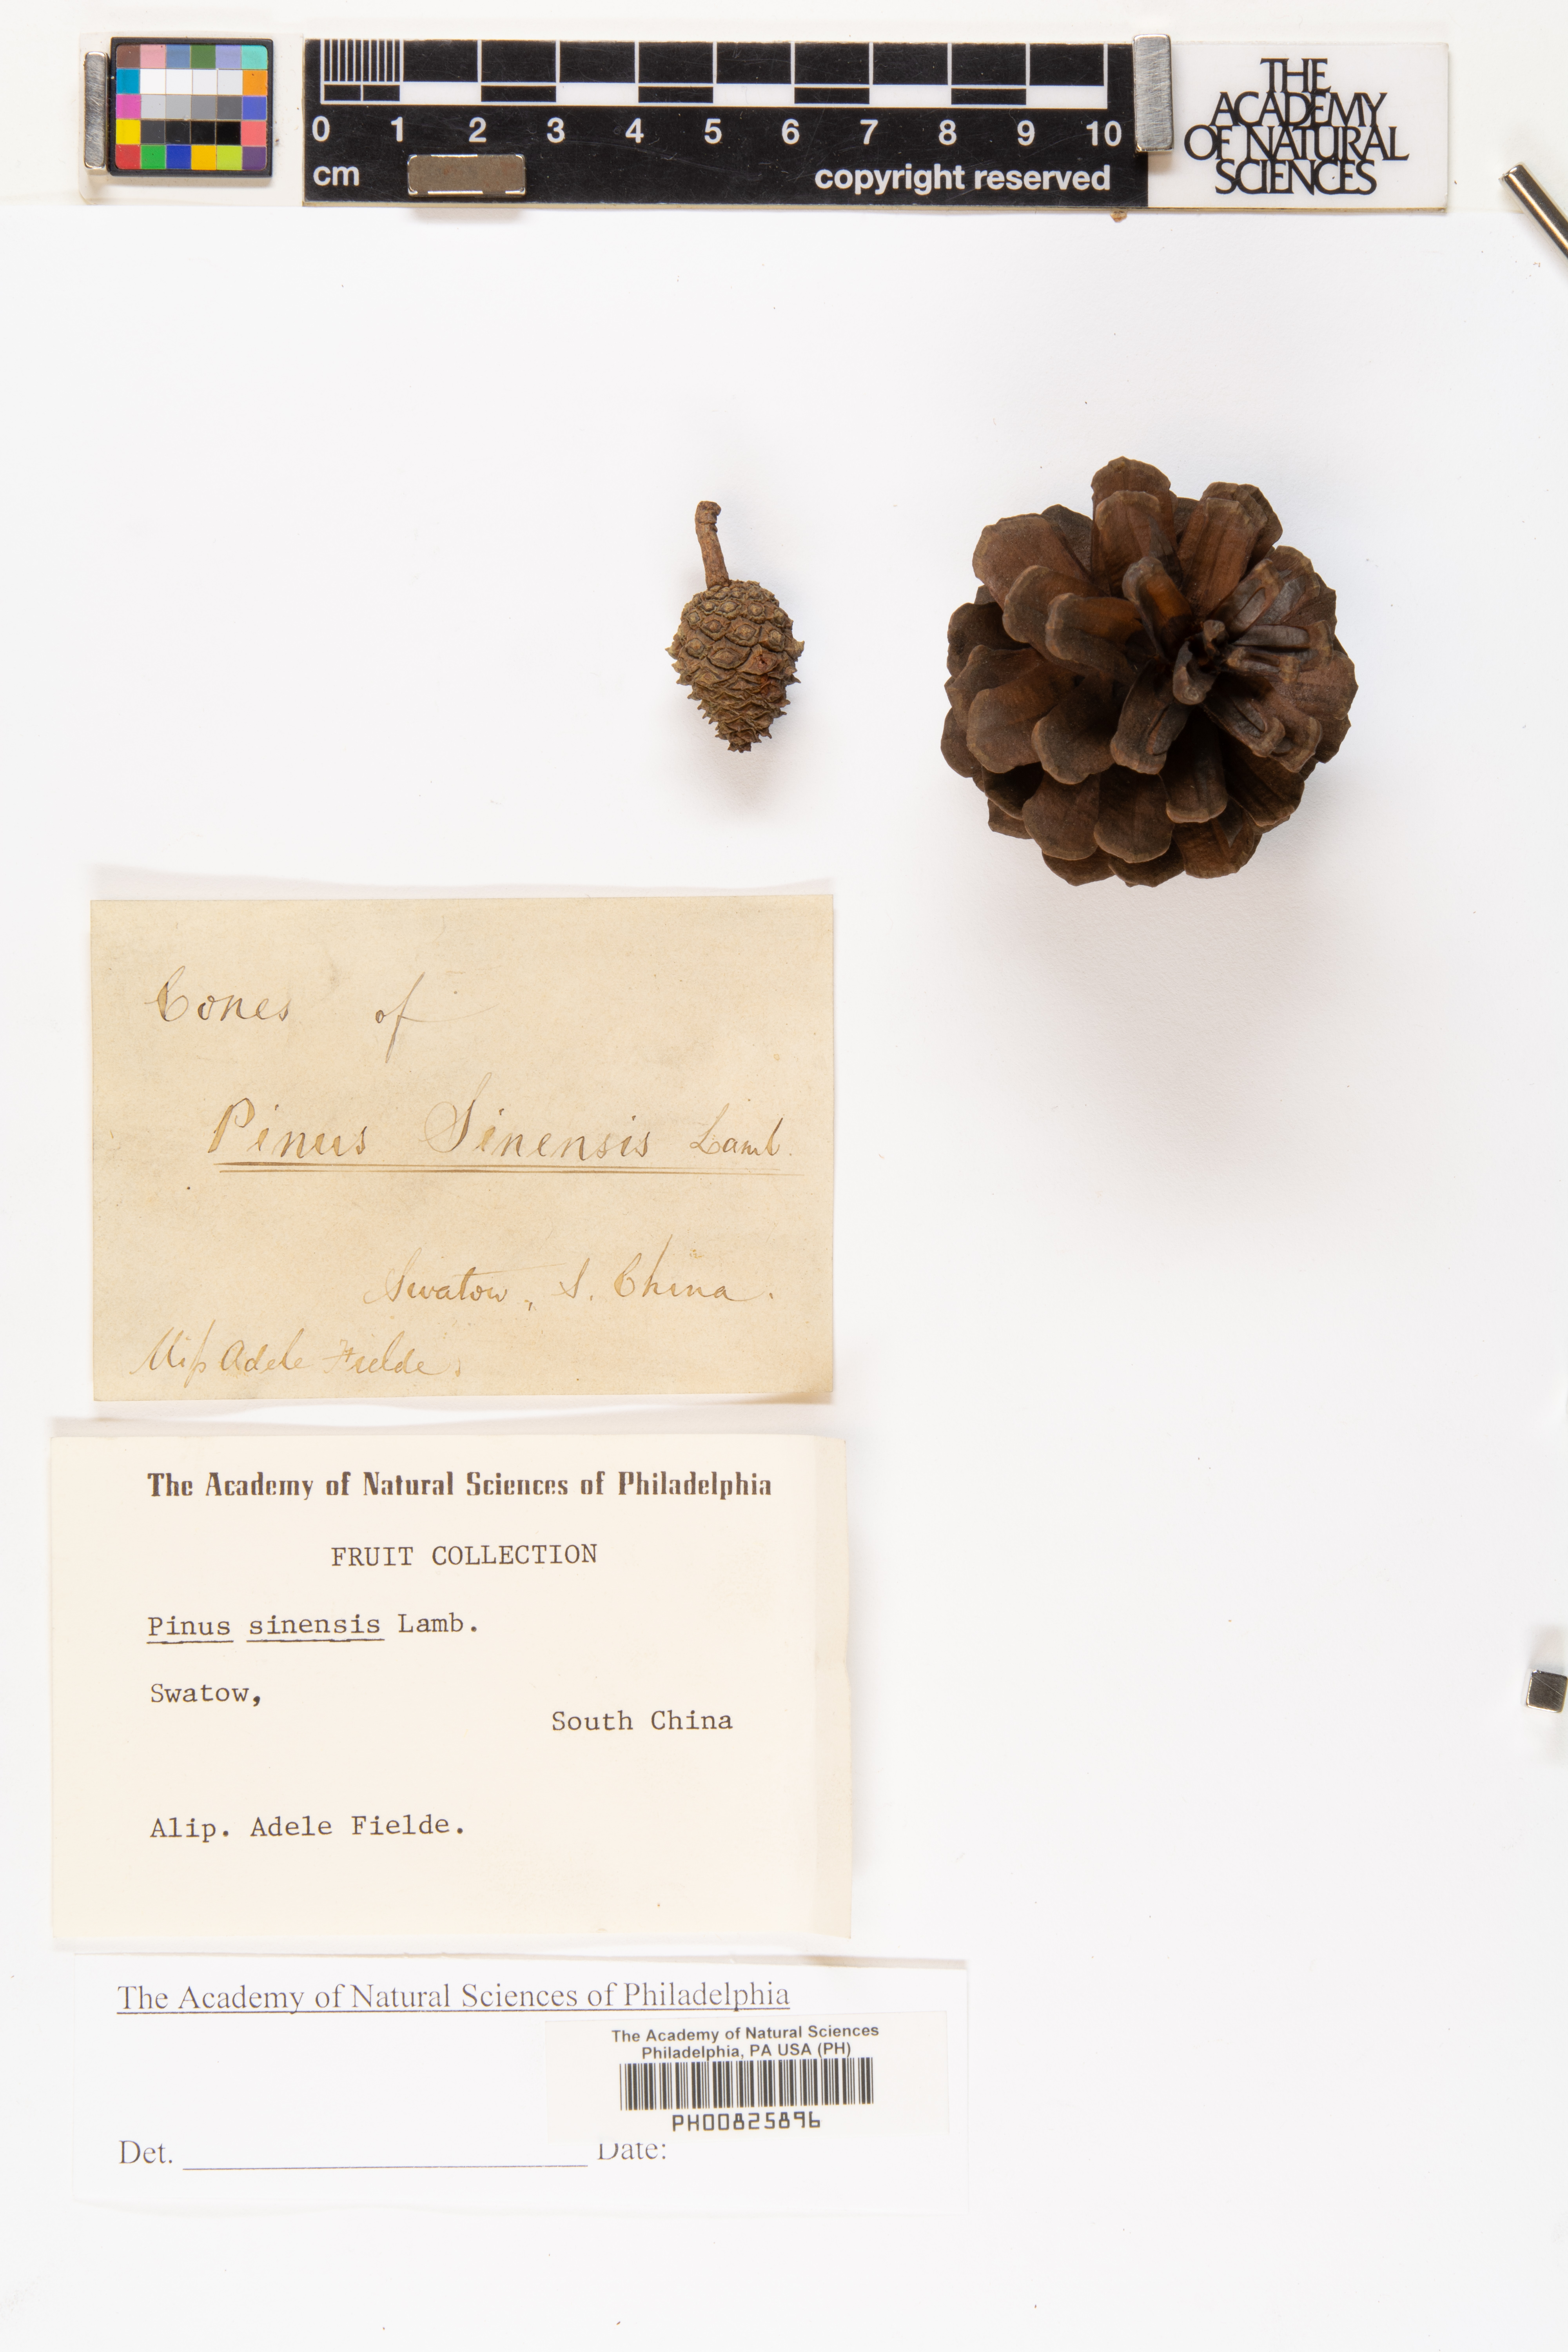 0 1 2 3 4 5 6 7 8 9 10
cm
copyright reserved
THE
ACADEMY
OF NATURAL
SCIENCES
Cones of
Pinus Sinensis Lamb.
Swatow, S. China.
Miſs Adele Fielde.
The Academy of Natural Sciences of Philadelphia
FRUIT COLLECTION
Pinus sinensis Lamb.
Swatow,
South China
Alip. Adele Fielde.
The Academy of Natural Sciences of Philadelphia
The Academy of Natural Sciences
Philadelphia, PA USA (PH)
PH00825896
Det. Date: